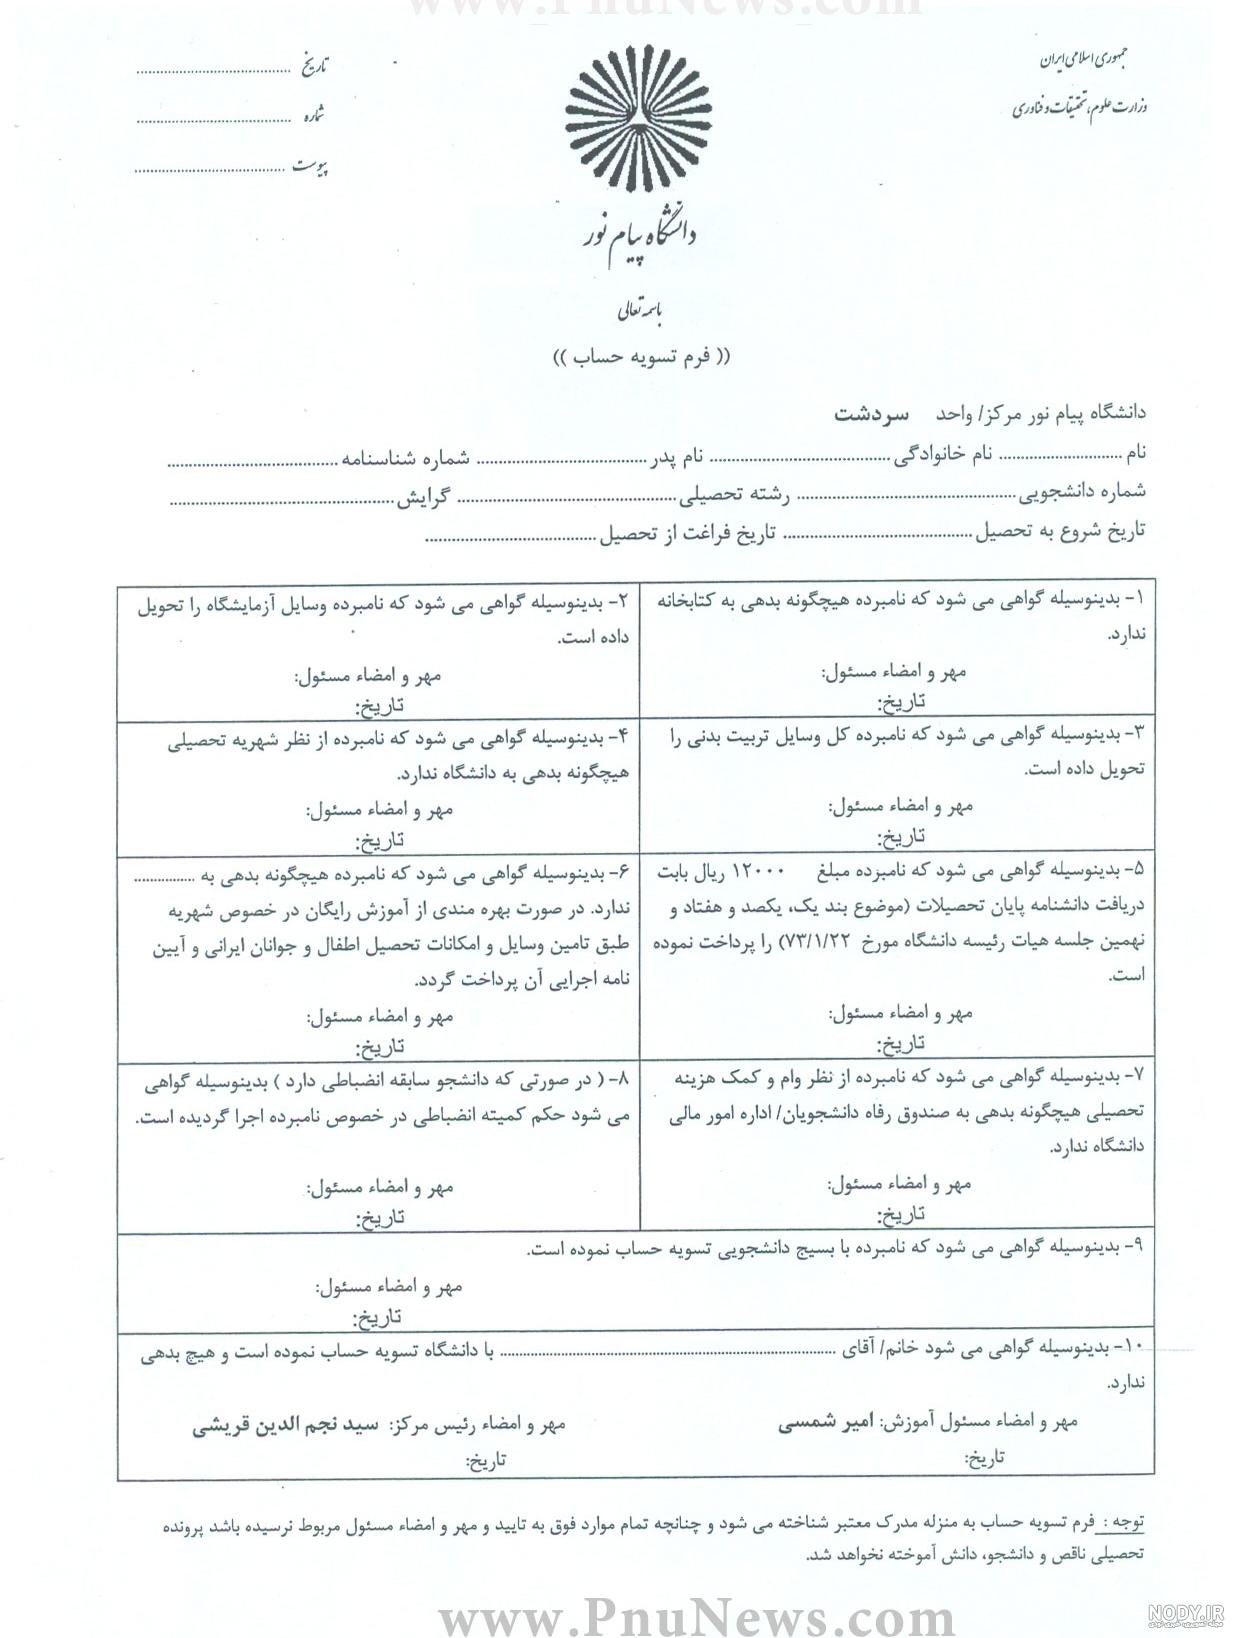 www.PnuNews.com
جمهوری اسلامی ایران
وزارت علوم، تحقیقات و فناوری
تاریخ ........................................
شماره ........................................
پیوست ........................................
دانشگاه پیام نور
باسمه تعالی
(( فرم تسویه حساب ))
دانشگاه پیام نور مرکز/ واحد سردشت
نام ............................ نام خانوادگی ......................................... نام پدر ....................................... شماره شناسنامه .......................................
شماره دانشجویی .................................................. رشته تحصیلی .................................................. گرایش ..................................................
تاریخ شروع به تحصیل ........................................... تاریخ فراغت از تحصیل .......................................
۱- بدینوسیله گواهی می شود که نامبرده هیچگونه بدهی به کتابخانه
ندارد.
مهر و امضاء مسئول:
تاریخ:
۲- بدینوسیله گواهی می شود که نامبرده وسایل آزمایشگاه را تحویل
داده است.
مهر و امضاء مسئول:
تاریخ:
۳- بدینوسیله گواهی می شود که نامبرده کل وسایل تربیت بدنی را
تحویل داده است.
مهر و امضاء مسئول:
تاریخ:
۴- بدینوسیله گواهی می شود که نامبرده از نظر شهریه تحصیلی
هیچگونه بدهی به دانشگاه ندارد.
مهر و امضاء مسئول:
تاریخ:
۵- بدینوسیله گواهی می شود که نامبرده مبلغ ۱۲۰۰۰ ریال بابت
دریافت دانشنامه پایان تحصیلات (موضوع بند یک، یکصد و هفتاد و
نهمین جلسه هیات رئیسه دانشگاه مورخ ۷۳/۱/۲۲) را پرداخت نموده
است.
مهر و امضاء مسئول:
تاریخ:
۶- بدینوسیله گواهی می شود که نامبرده هیچگونه بدهی به ...............
ندارد. در صورت بهره مندی از آموزش رایگان در خصوص شهریه
طبق تامین وسایل و امکانات تحصیل اطفال و جوانان ایرانی و آیین
نامه اجرایی آن پرداخت گردد.
مهر و امضاء مسئول:
تاریخ:
۷- بدینوسیله گواهی می شود که نامبرده از نظر وام و کمک هزینه
تحصیلی هیچگونه بدهی به صندوق رفاه دانشجویان/ اداره امور مالی
دانشگاه ندارد.
مهر و امضاء مسئول:
تاریخ:
۸- ( در صورتی که دانشجو سابقه انضباطی دارد ) بدینوسیله گواهی
می شود حکم کمیته انضباطی در خصوص نامبرده اجرا گردیده است.
مهر و امضاء مسئول:
تاریخ:
۹- بدینوسیله گواهی می شود که نامبرده با بسیج دانشجویی تسویه حساب نموده است.
مهر و امضاء مسئول:
تاریخ:
۱۰- بدینوسیله گواهی می شود خانم/ آقای ................................................................................ با دانشگاه تسویه حساب نموده است و هیچ بدهی
ندارد.
مهر و امضاء مسئول آموزش: امیر شمسی
تاریخ:
مهر و امضاء رئیس مرکز: سید نجم الدین قریشی
تاریخ:
توجه : فرم تسویه حساب به منزله مدرک معتبر شناخته می شود و چنانچه تمام موارد فوق به تایید و مهر و امضاء مسئول مربوط نرسیده باشد پرونده
تحصیلی ناقص و دانشجو، دانش آموخته نخواهد شد.
www.PnuNews.com
NODY.IR